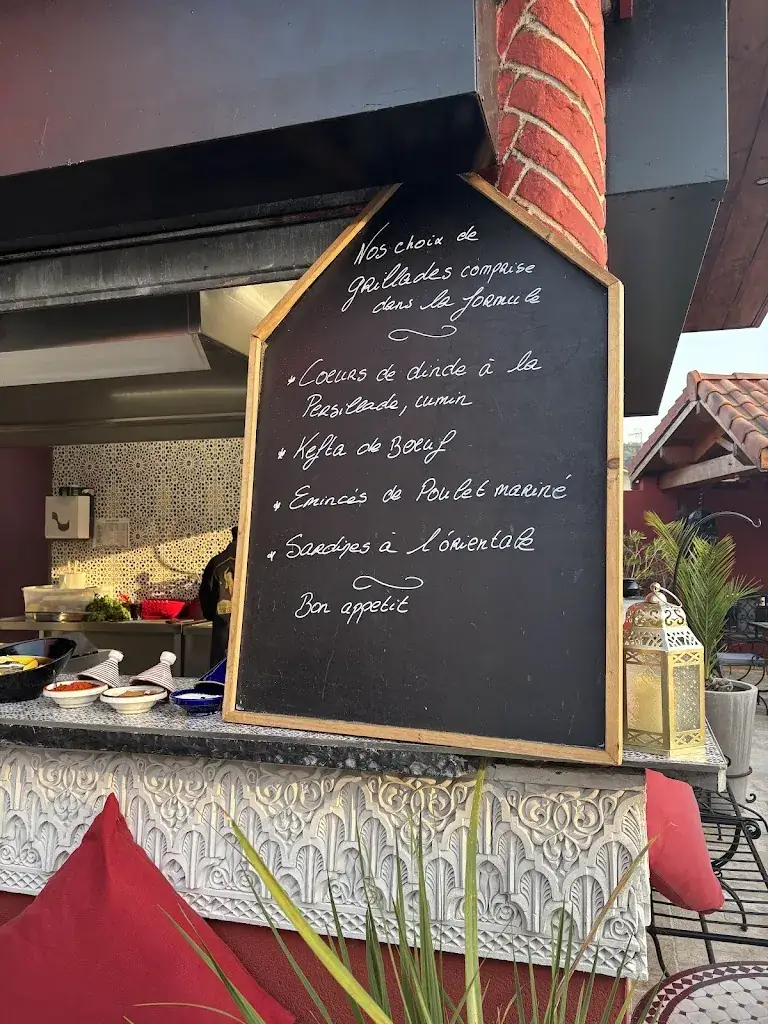 Nos choix de
grillades comprise
dans la formule
* Coeurs de dinde à la
Persillade, cumin
* Kefta de Boeuf
* Emincés de Poulet mariné
* Sardines à l'orientale
Bon appetit